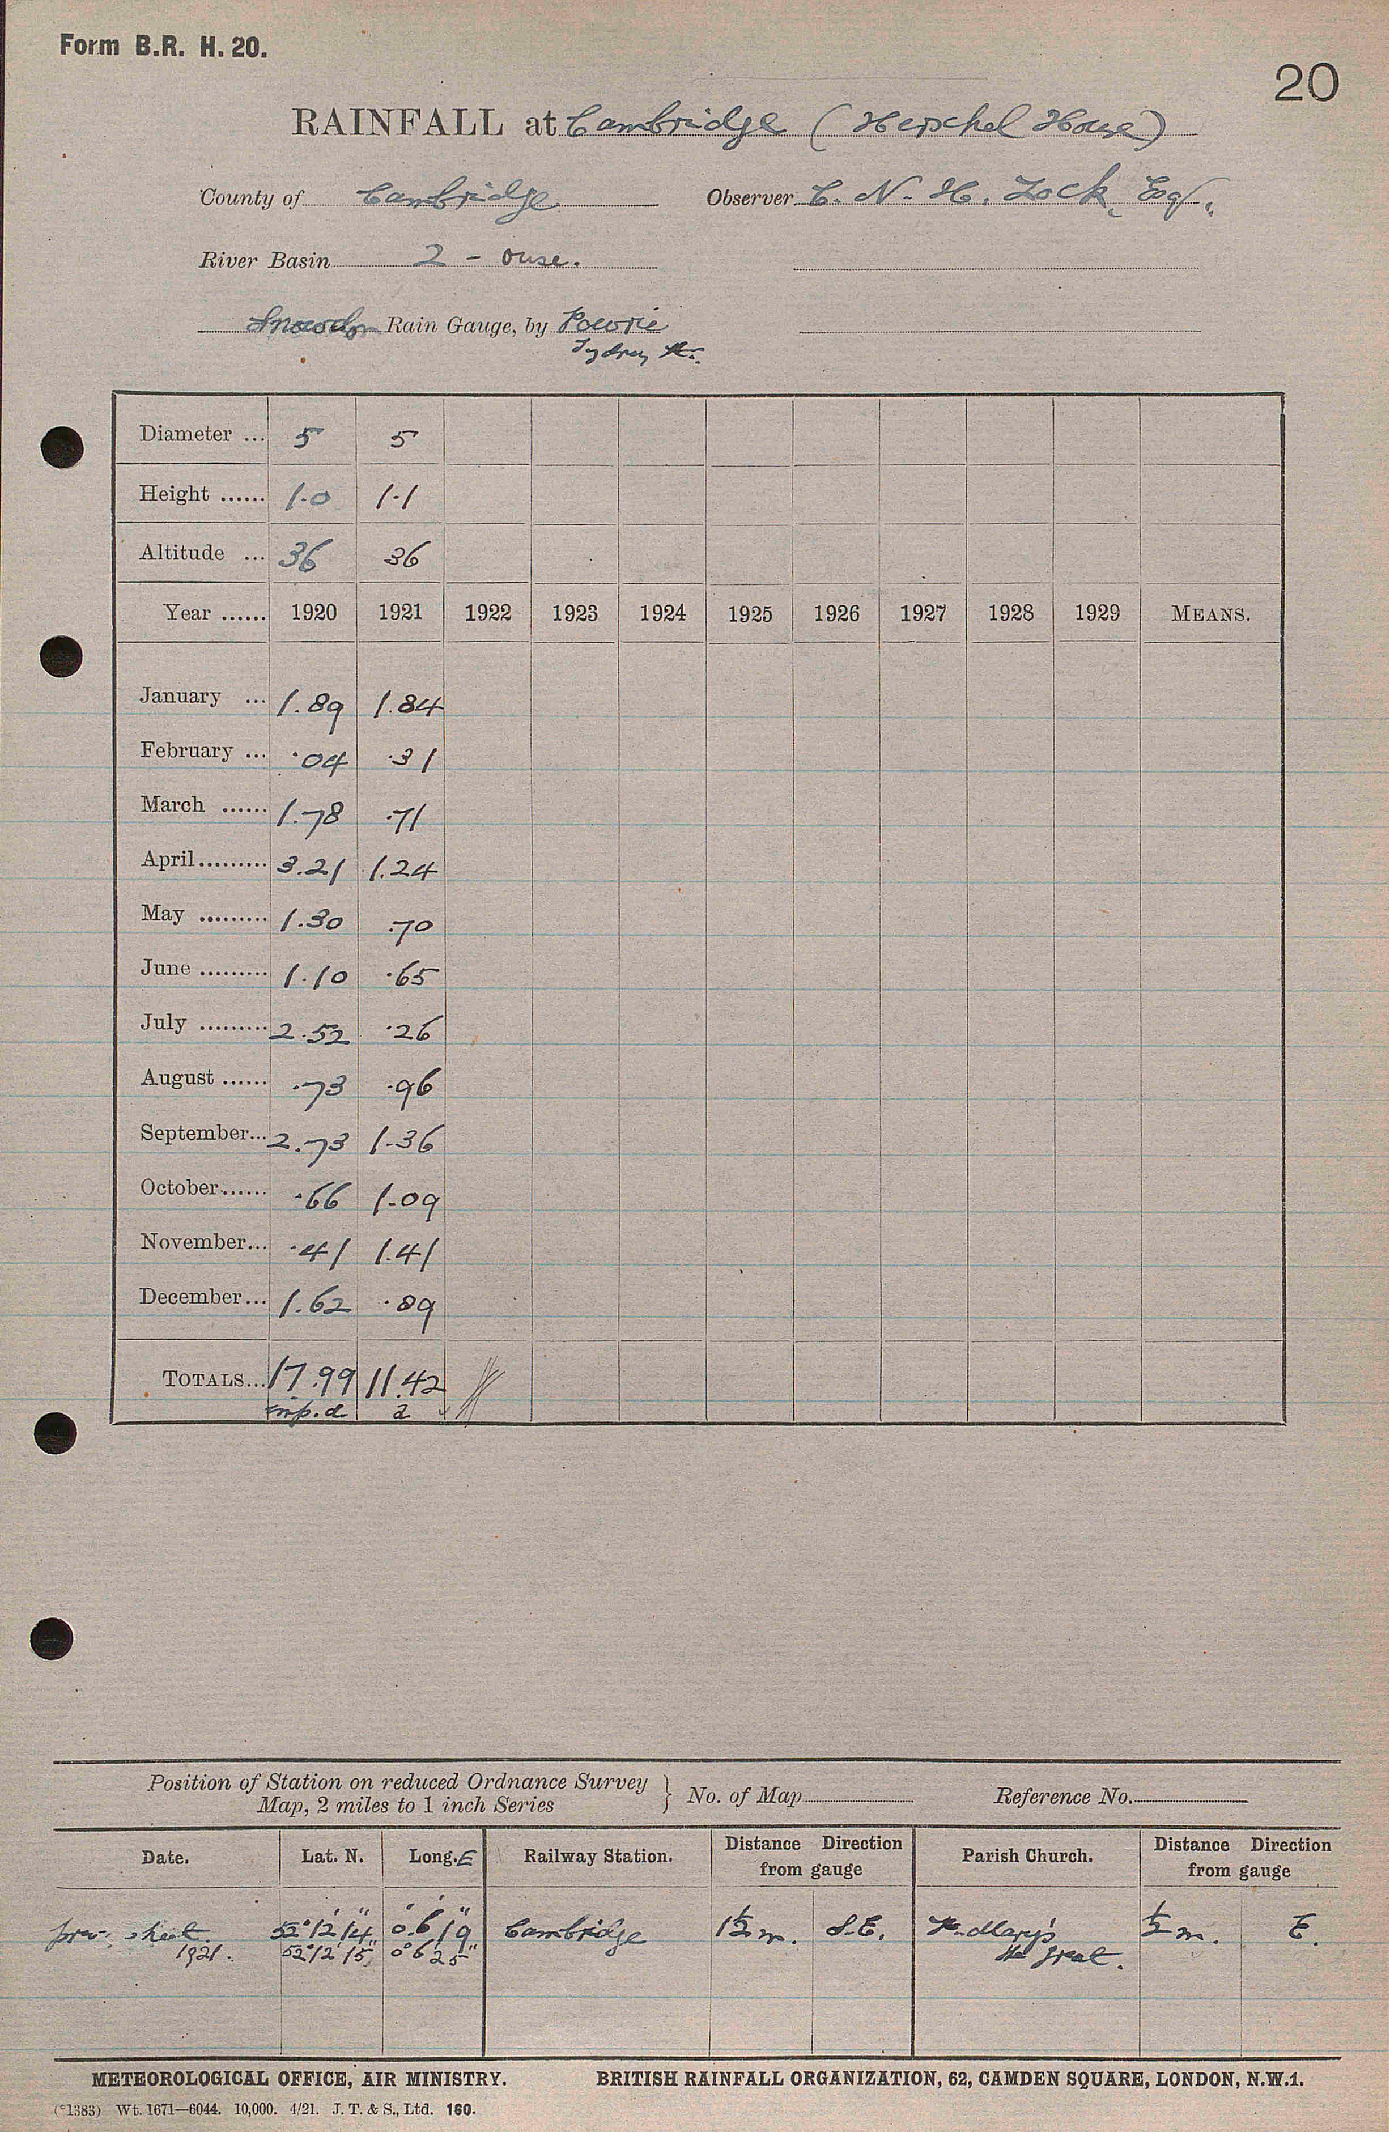 Form B.R. H. 20.
20
RAINFALL at Cambridge (Herschel House)
County of Cambridge Observer C. N. H. Lock, Esq.
River Basin 2 - Ouse.
Snowdon Rain Gauge, by Powrie
Sydney St.
Diameter ... 5 5
Height ...... 1.0 1.1
Altitude ... 36 36
Year ...... 1920 1921 1922 1923 1924 1925 1926 1927 1928 1929 MEANS.
January ... 1.89 1.84
February ... .04 .31
March ...... 1.78 .71
April ......... 3.21 1.24
May ......... 1.30 .70
June ......... 1.10 .65
July ......... 2.52 .26
August ...... .73 .96
September... 2.73 1.36
October...... .66 1.09
November... .41 1.41
December... 1.62 .89
TOTALS... 17.99 11.42
Imp. d 2
Position of Station on reduced Ordnance Survey
Map, 2 miles to 1 inch Series } No. of Map Reference No.
Date. Lat. N. Long. E Railway Station. Distance Direction from gauge Parish Church. Distance Direction from gauge
prev. sheet. 52° 12' 14" 0° 6' 19" Cambridge 1½ m. S.E. St. Mary's ½ m. E.
1921. 52° 12' 15" 0° 6' 25" the Great.
METEOROLOGICAL OFFICE, AIR MINISTRY. BRITISH RAINFALL ORGANIZATION, 62, CAMDEN SQUARE, LONDON, N.W.1.
(*1383) Wt. 1671—6044. 10,000. 4/21. J. T. & S., Ltd. 160.